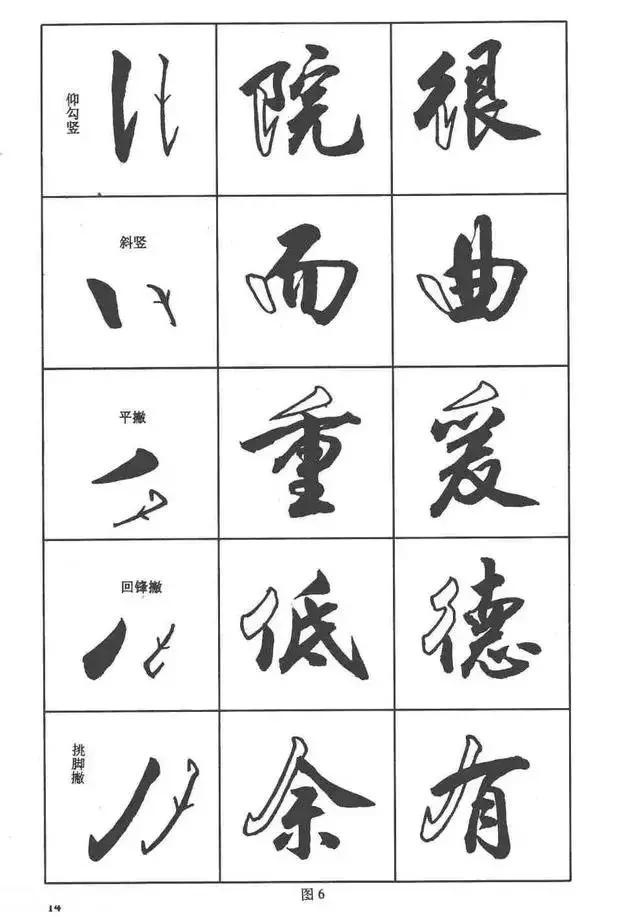 仰勾竖
院
很
斜竖
而
曲
平撇
重
爰
回锋撇
低
德
挑脚撇
余
有
图 6
14